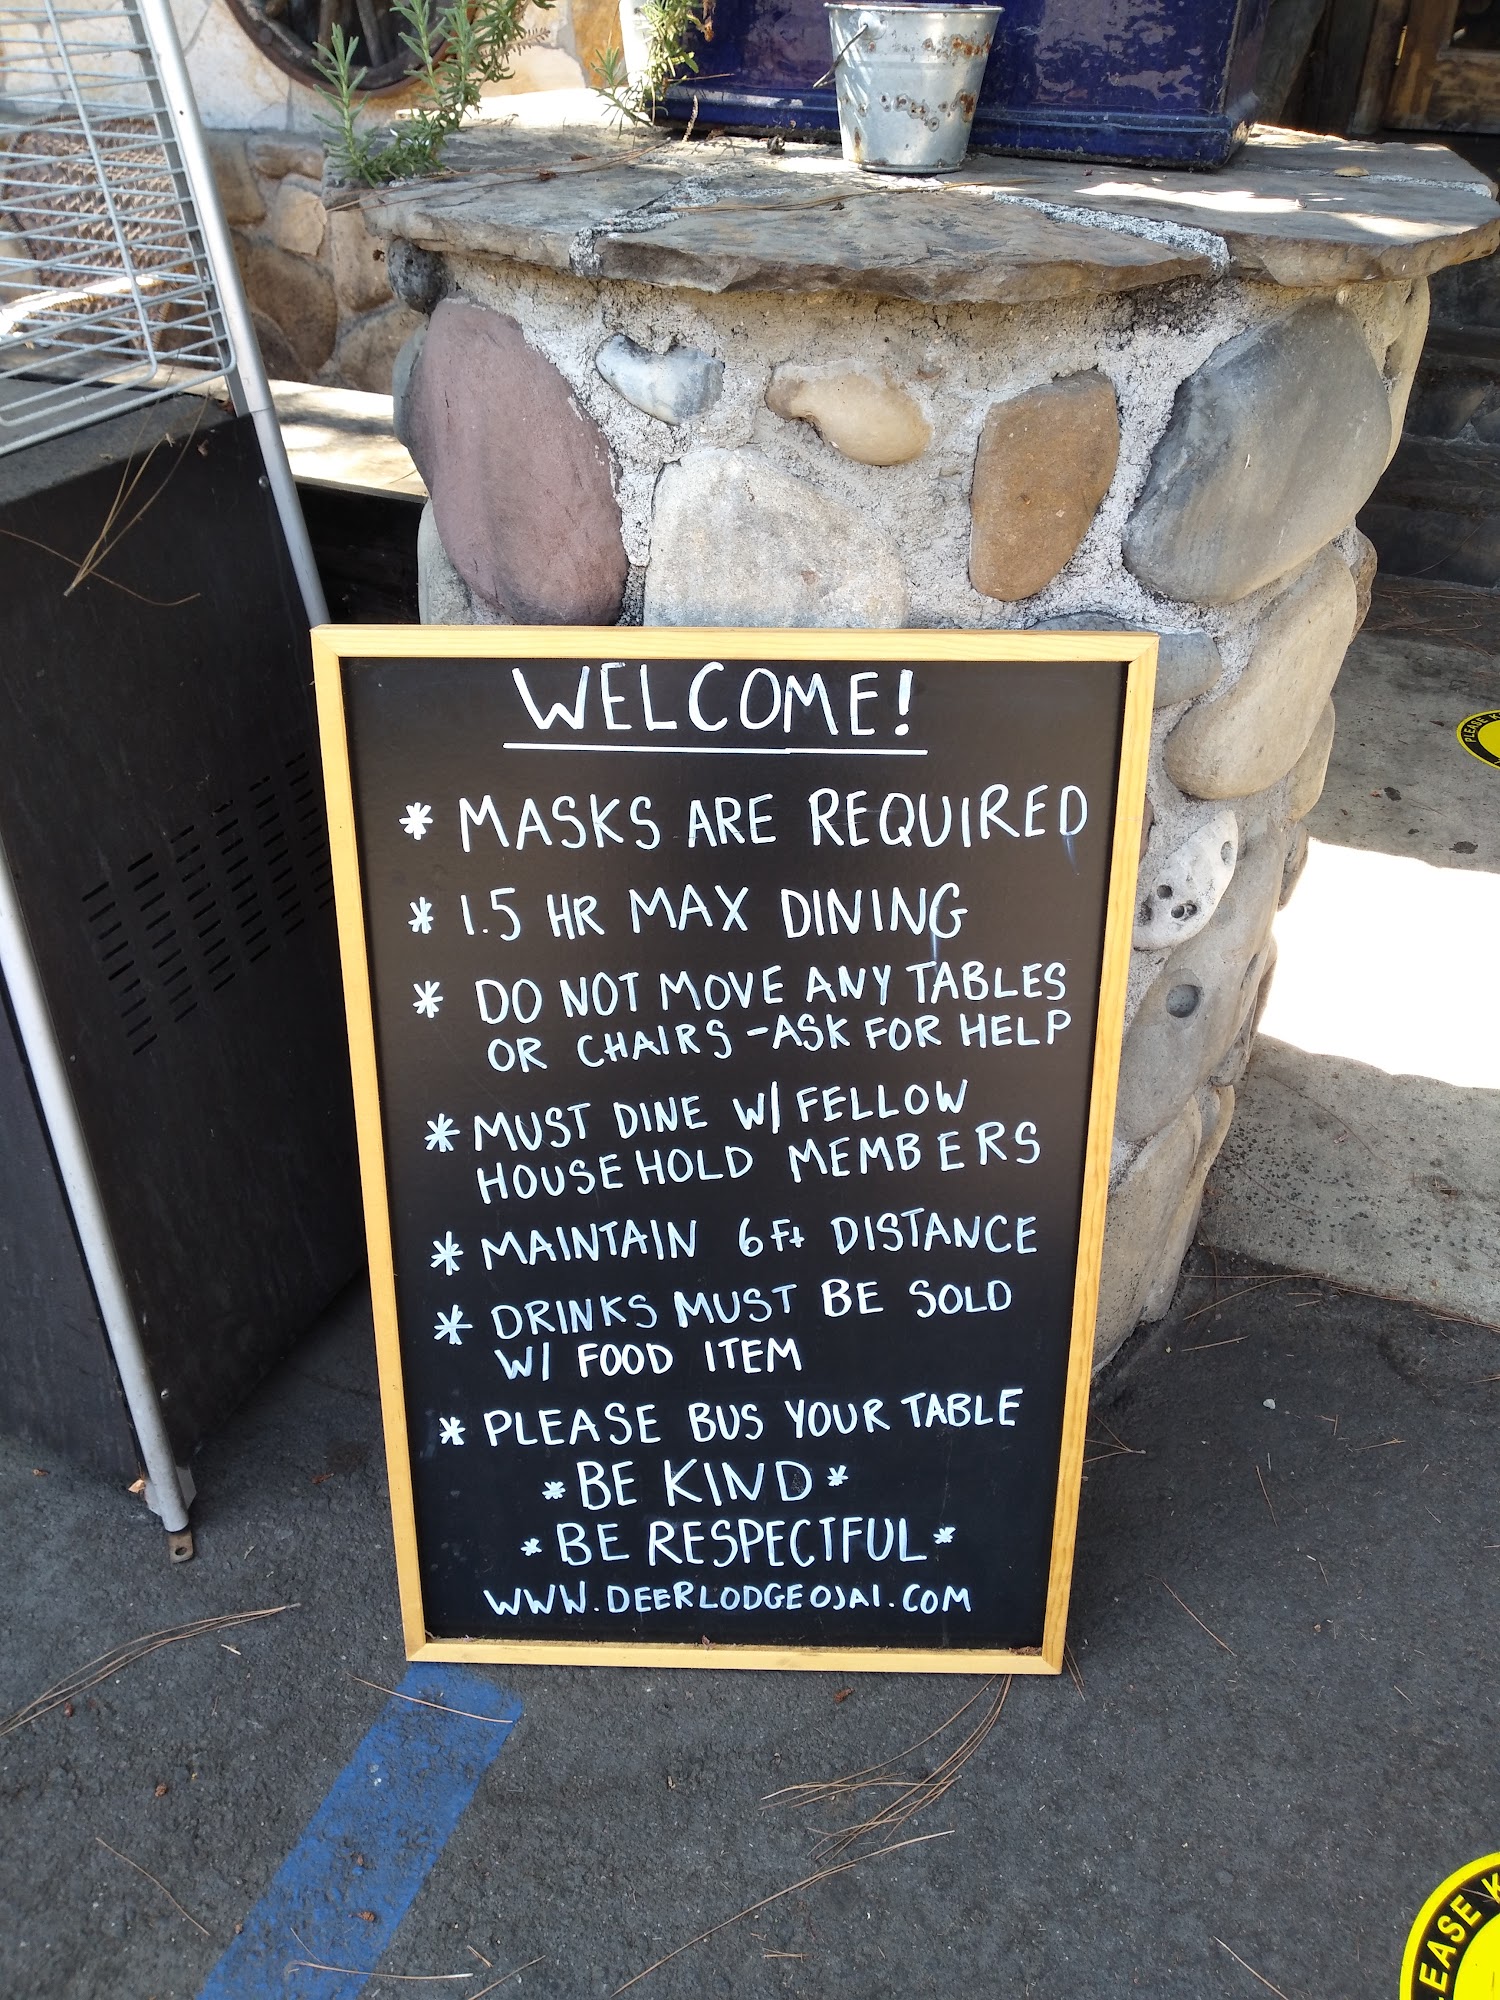 WELCOME!
* MASKS ARE REQUIRED
* 1.5 HR MAX DINING
* DO NOT MOVE ANY TABLES
OR CHAIRS - ASK FOR HELP
* MUST DINE W/ FELLOW
HOUSEHOLD MEMBERS
* MAINTAIN 6Ft DISTANCE
* DRINKS MUST BE SOLD
W/ FOOD ITEM
* PLEASE BUS YOUR TABLE
* BE KIND *
* BE RESPECTFUL *
WWW.DEERLODGEOJAI.COM
PLEASE K
EASE K